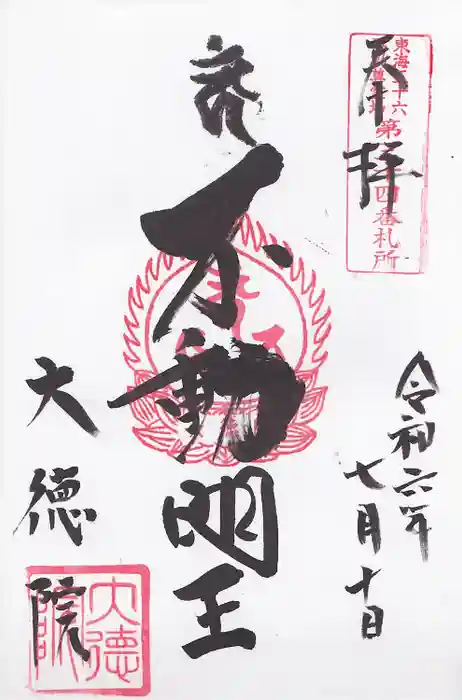 奉拝
東海三十六
第二十四番札所
令和六年
七月十日
不動明王
大徳院
大德院